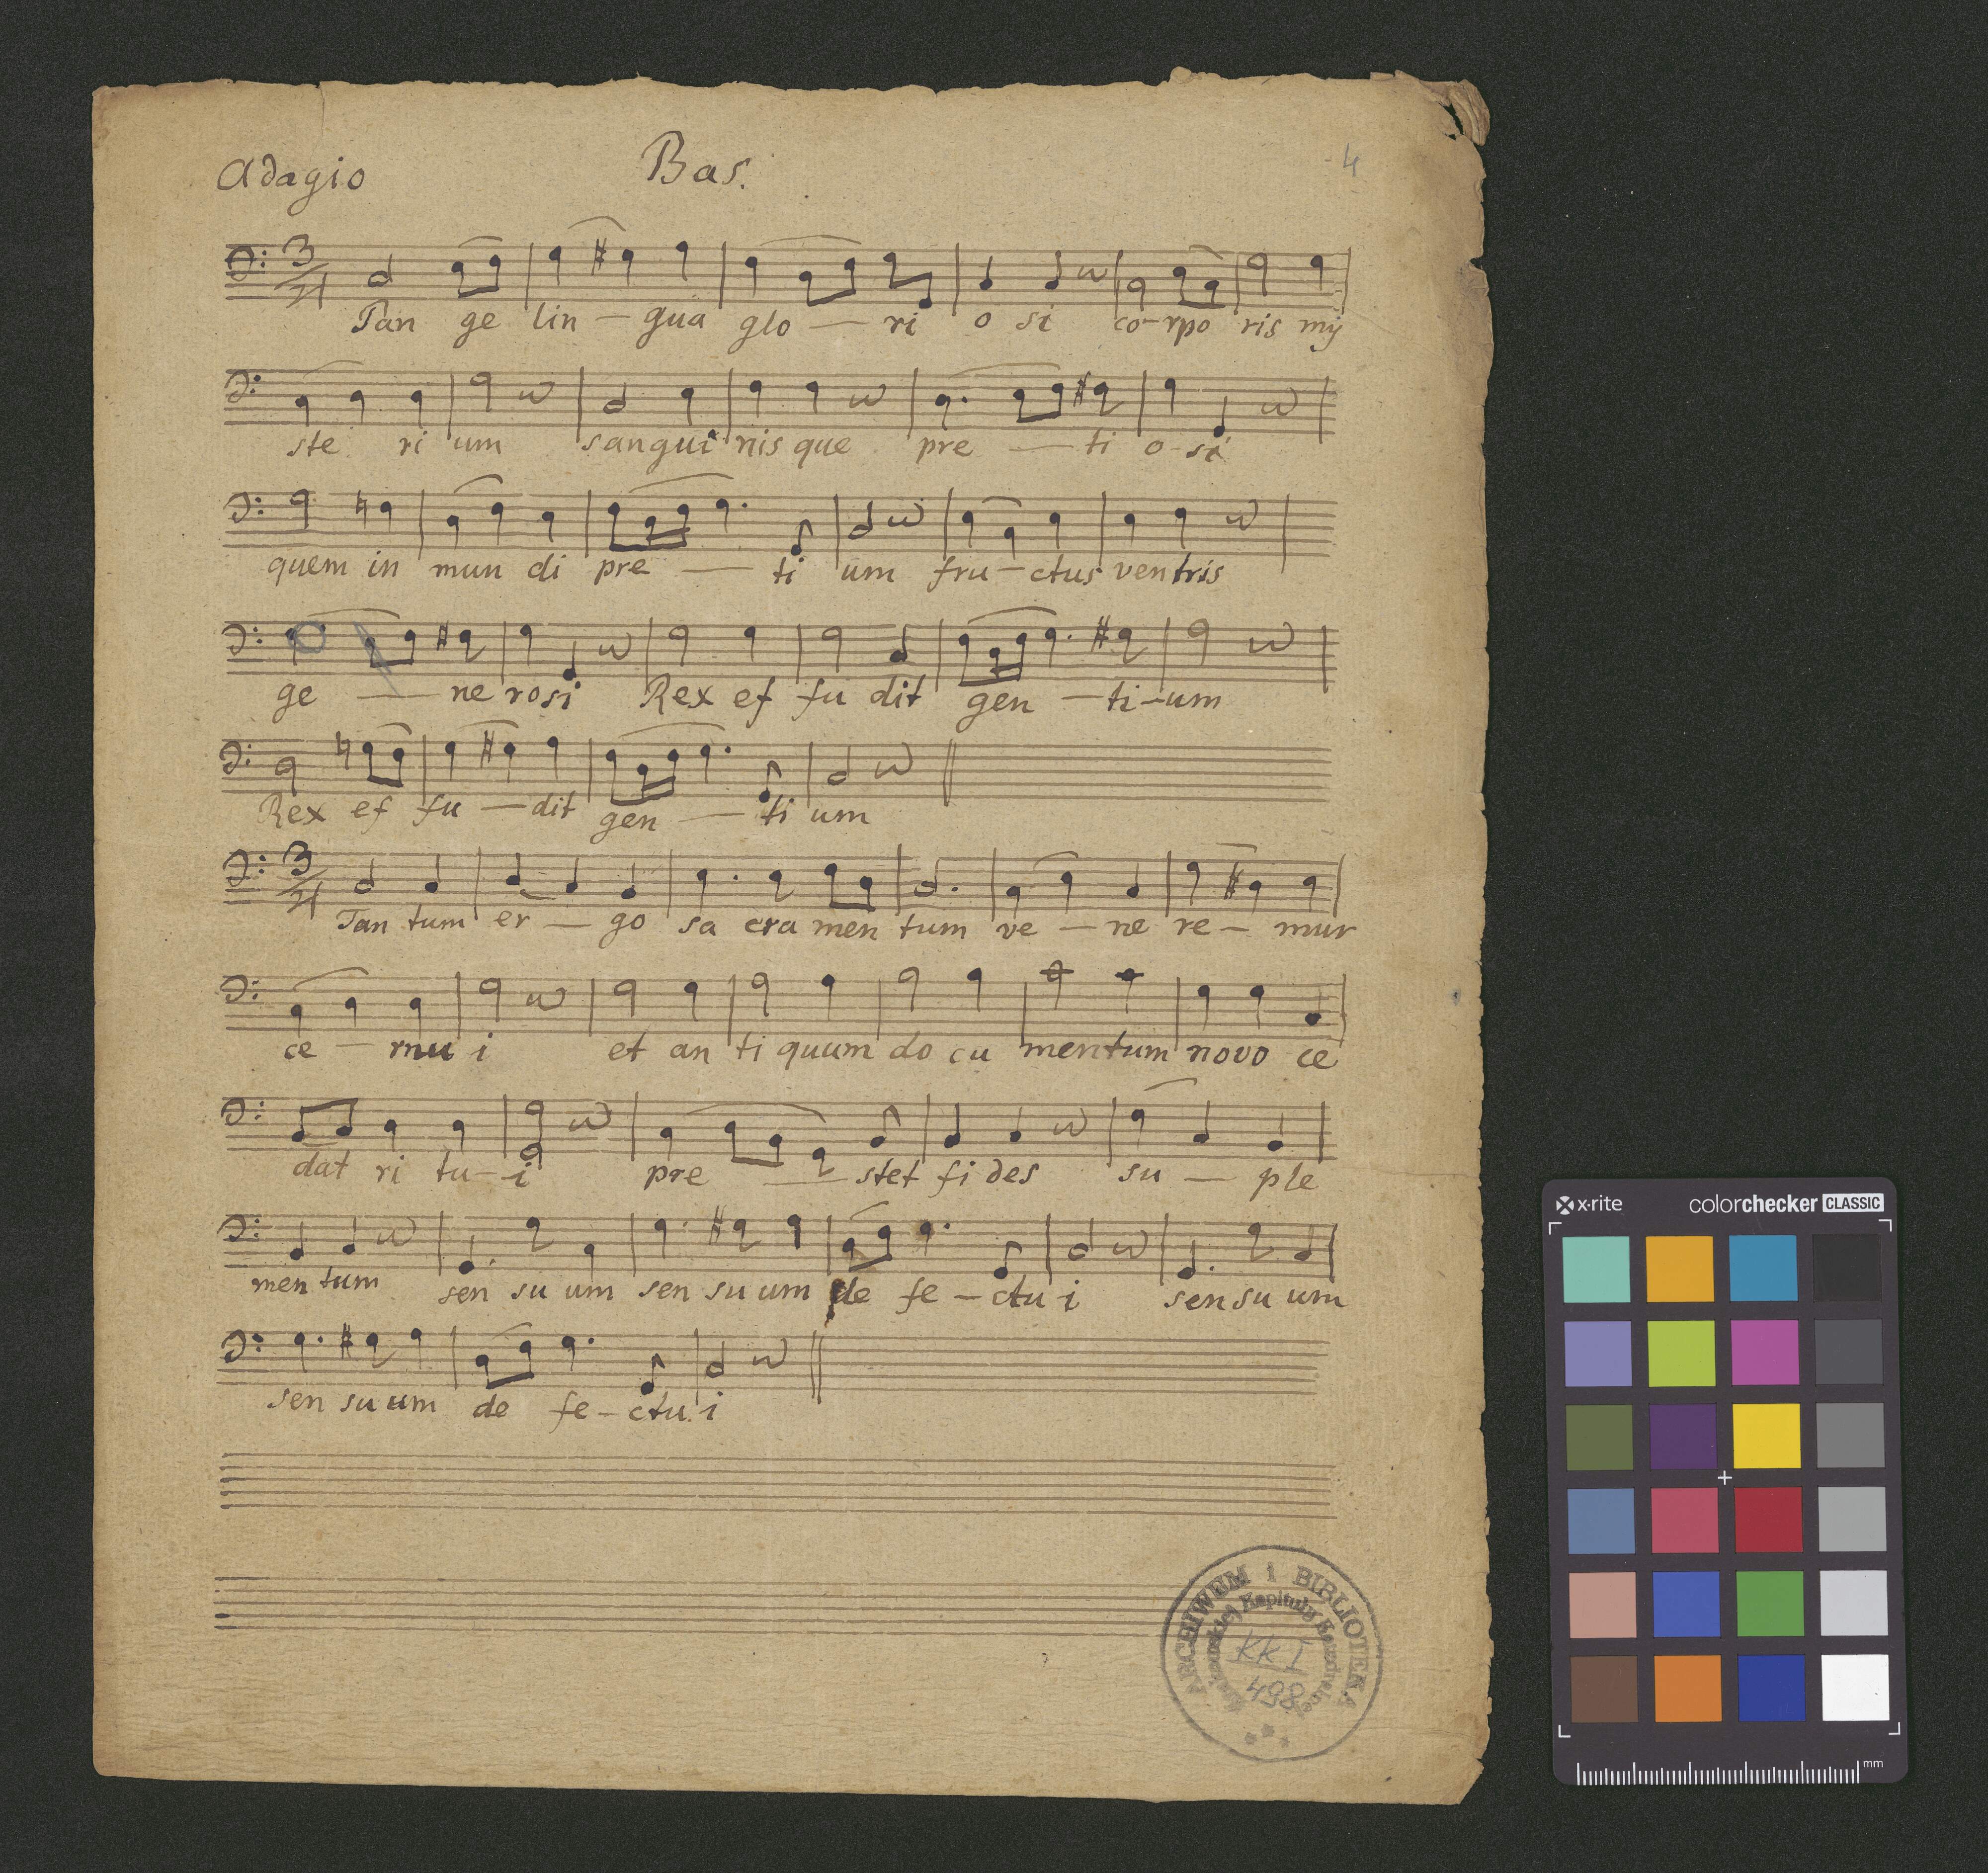 Adagio Bas. 4
3/4
Tan ge lin — gua glo — ri o si co-rpo ris mÿ
ste ri um sangui nis que pre — ti o-si
quem in mun di pre — ti um fru — ctus ventris
ge — ne rosi Rex ef fu dit gen — ti-um
Rex ef fu — dit gen — ti um
3/4
Tan tum er — go sa cra men tum ve — ne re — mur
ce — rnu i et an ti quum do cu mentum novo ce
dat ri tu-i pre — stet fi des su — ple
men tum sen su um sen su um de fe — ctu i sen su um
sen su um de fe — ctu i
ARCHIWUM i BIBLIOTEKA
Krakowskiej Kapituły Katedralnej
KK I
498
x-rite colorchecker CLASSIC
mm